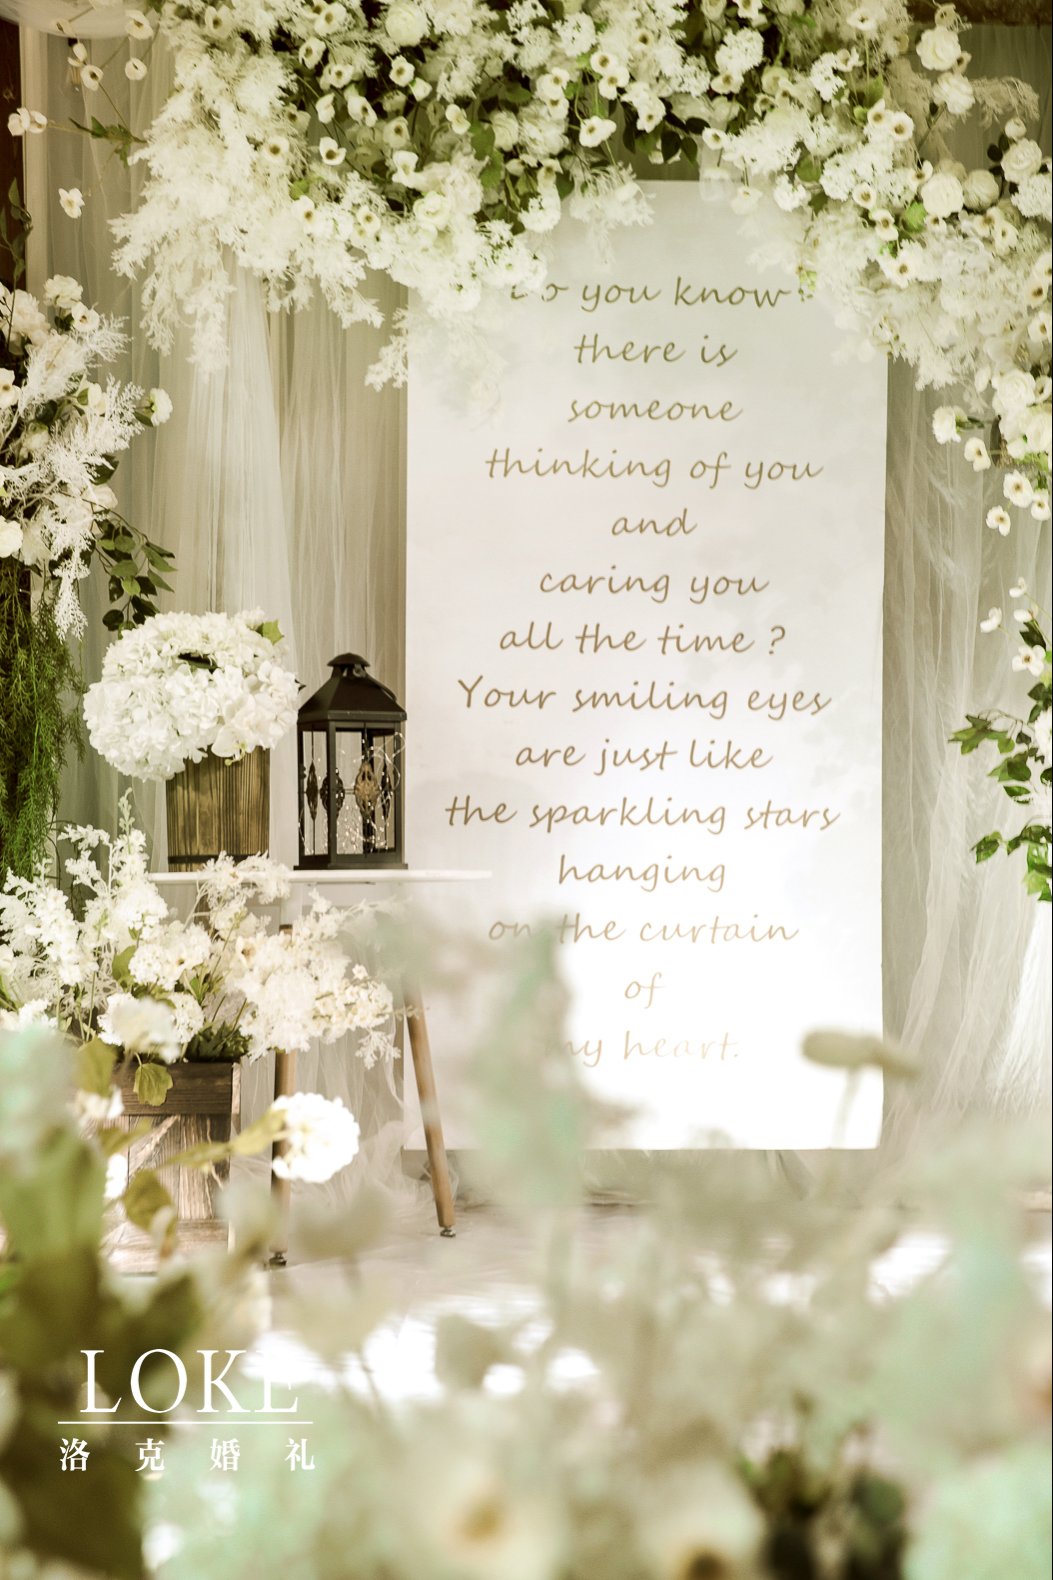 Do you know
there is
someone
thinking of you
and
caring you
all the time ?
Your smiling eyes
are just like
the sparkling stars
hanging
on the curtain
of
my heart.
LOKE
洛克婚礼